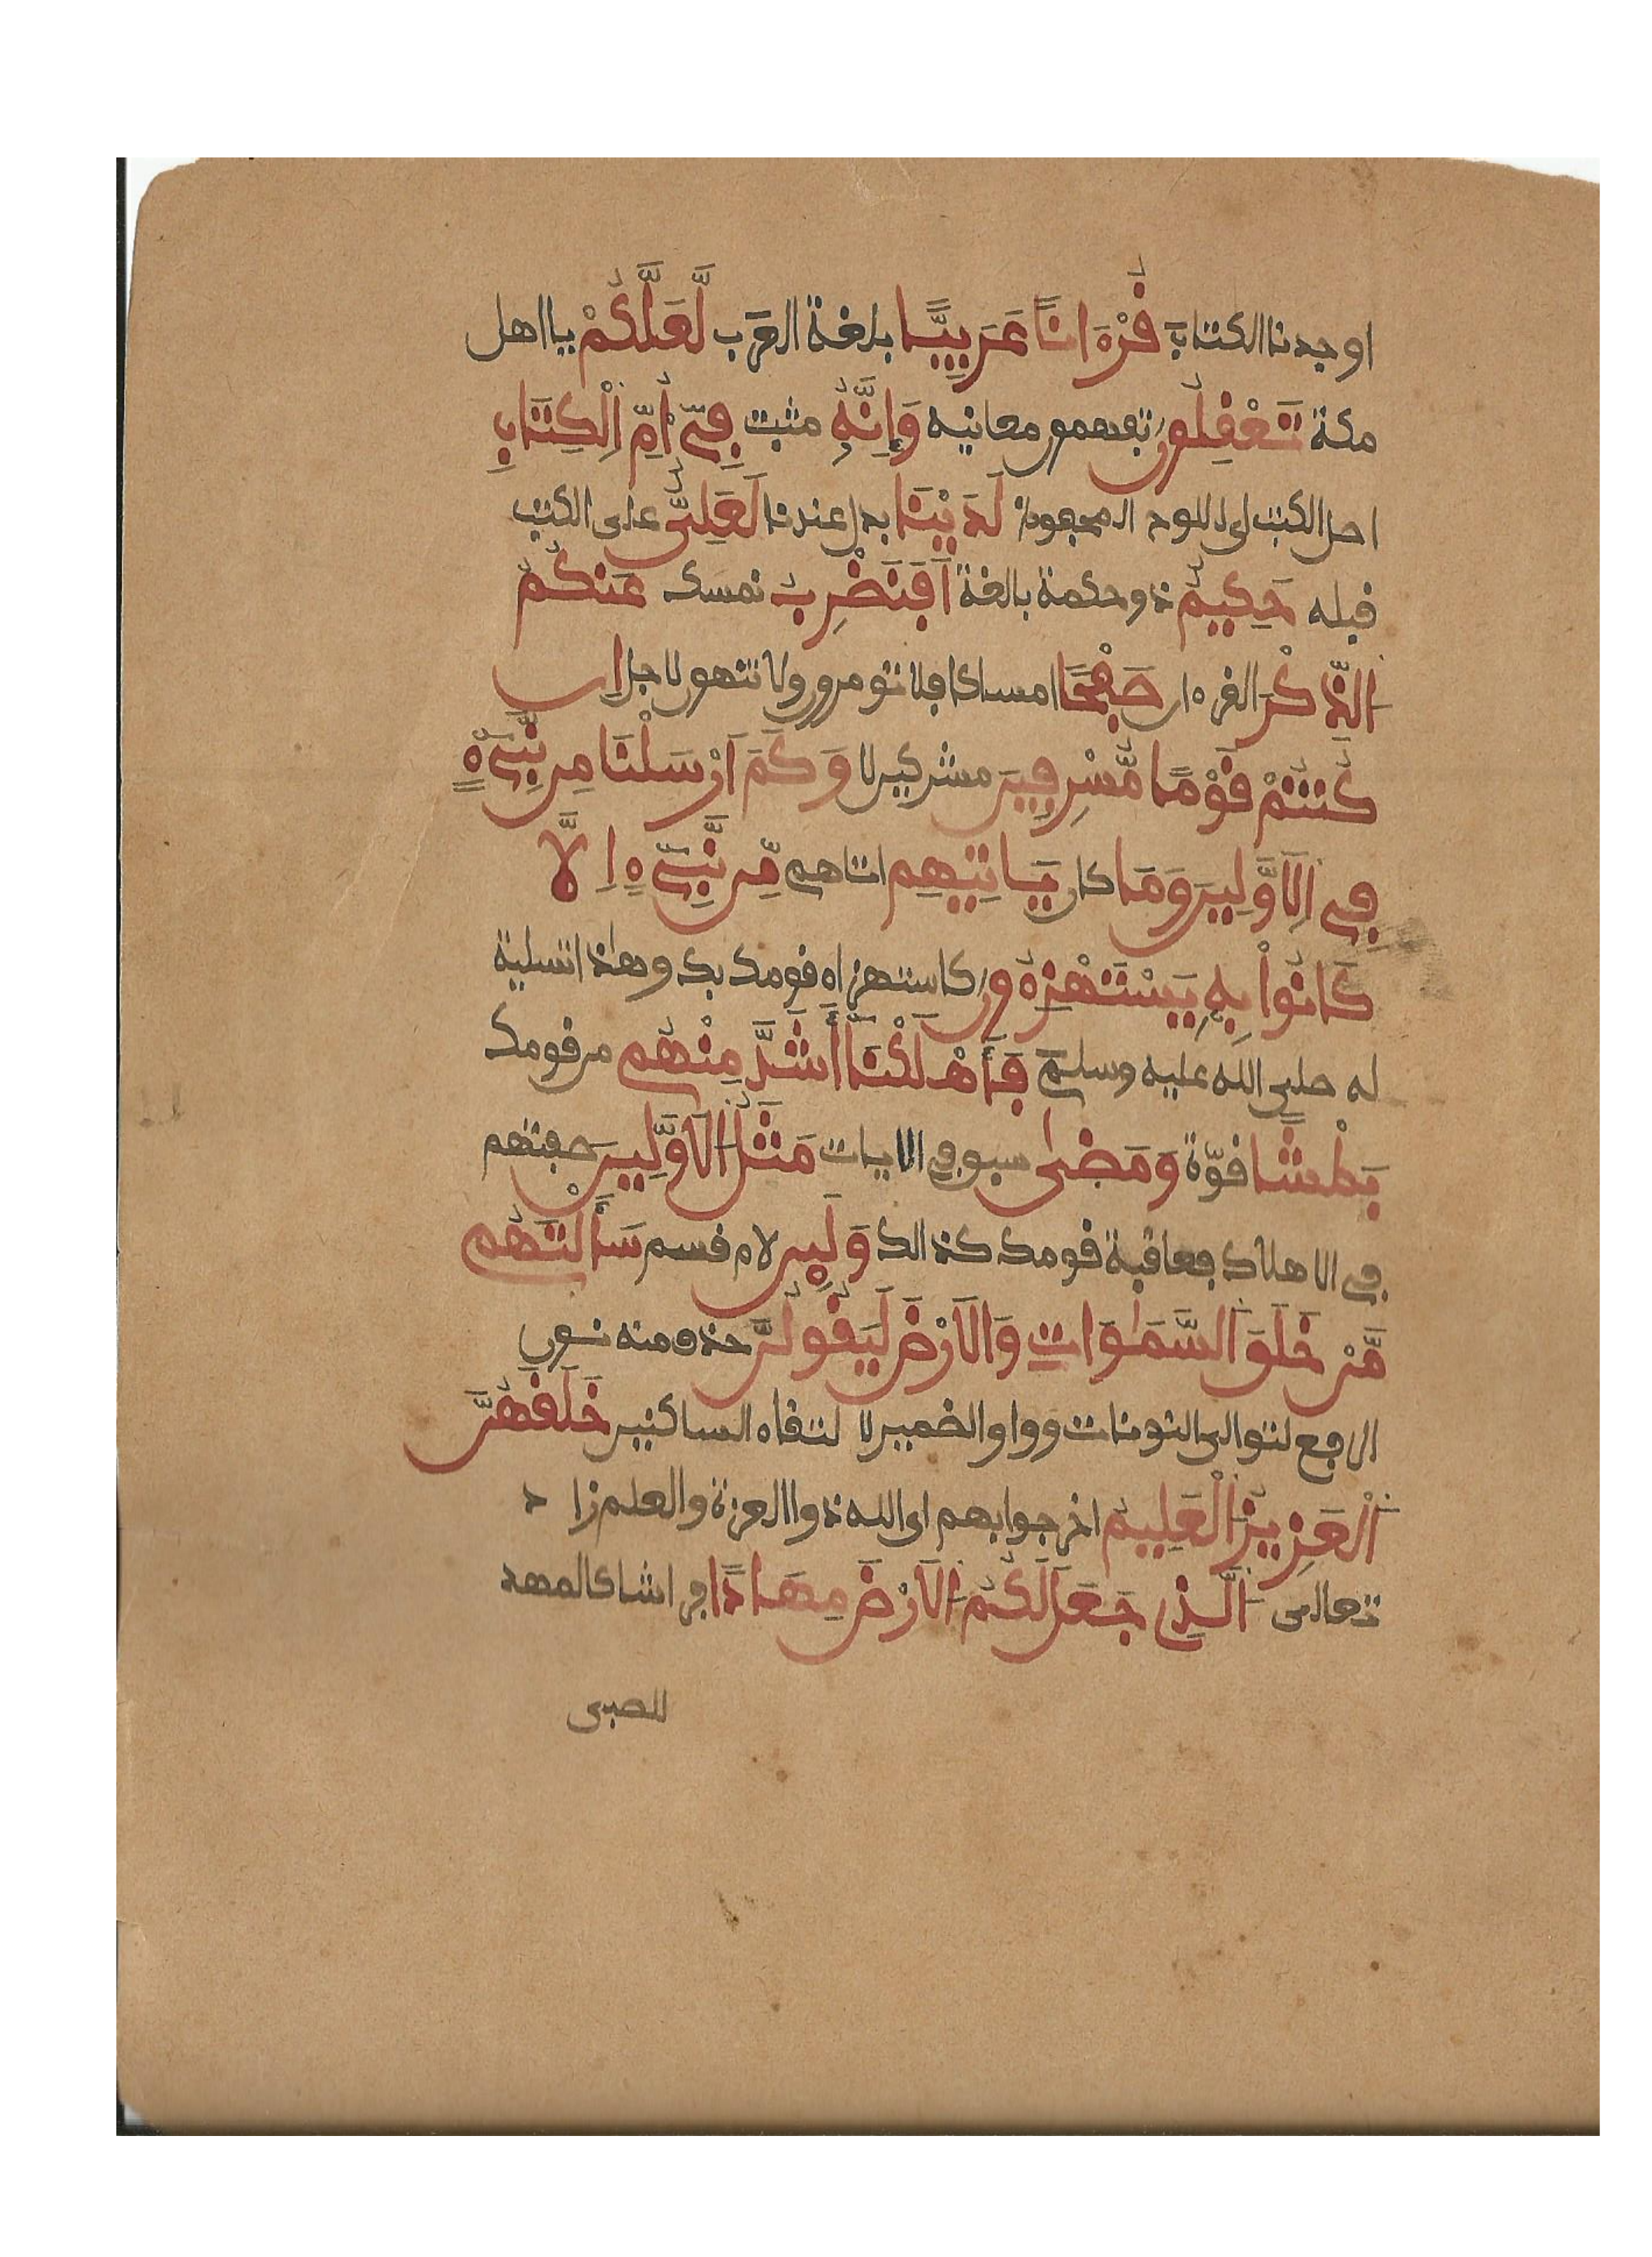 اوجدنا الكتاب قُرْءَانًا عَرَبِيًّا بلغة العرب لَّعَلَّكُمْ يا اهل
مكة تَعْقِلُونَ تفهمون معانيه وَإِنَّهُ مثبت فِيٓ أُمِّ اِ۬لْكِتَٰبِ
اصل الكتب اى اللوح المحفوظ لَدَيْنَا بدل عندنا لَعَلِيٌّ على الكتب
قبله حَكِيمٌ ذو حكمة بالغة اَفَنَضْرِبُ نمسك عَنكُمُ
اُ۬لذِّكْرَ القرءان صَفْحًا امساكا فلا تومرون ولا تنهون لاجل اِن
كُنتُمْ قَوْمًا مُّسْرِفِينَ مشركين لا وَكَمَ اَرْسَلْنَا مِن نَّبِيٓءٍ
فِي اِ۬لَاوَّلِينَ وَمَا كان يَاتِيهِم اتاهم مِّن نَّبِيٓءٍ اِلَّا
كَانُوا۟ بِهِ يَسْتَهْزِءُونَ كاستهزاء قومك بك وهذا تسلية
له صلى الله عليه وسلم فَأَهْلَكْنَا أَشَدَّ مِنْهُم من قومك
بَطْشًا قوّة وَمَضَىٰ سبق في الايات مَثَلُ اُ۬لَاوَّلِينَ صفتهم
في الاهلاك فعاقبة قومك كذالك وَلَئِن لام قسم سَأَلْتَهُم
مَّنْ خَلَقَ اَ۬لسَّمَٰوَٰتِ وَالَارْضَ لَيَقُولُنَّ حذف منه نون
الرفع لتوالى النونات وواو الضمير لا لتقاء الساكنين خَلَقَهُنَّ
اَ۬لْعَزِيزُ اُ۬لْعَلِيمُ اخر جوابهم اى الله ذوا العزة والعلم زاد
تعالى اَ۬لَّذِي جَعَلَ لَكُمُ اُ۬لَارْضَ مِهَادًا فراشا كالمهد
للصبى